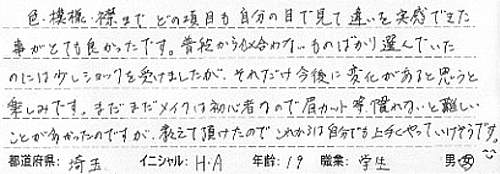 色・模様・襟まで どの項目も自分の目で見て違いを実感できた
事がとても良かったです。普段から似合わないものばかり選んでいた
のには少しショックを受けましたが、それだけ今後に変化があると思うと
楽しみです。まだまだメイクは初心者なので眉カット等、慣れないと難しい
ことが多かったのですが、教えて頂けたのでこれからは自分でも上手くやっていけそうです。
都道府県: 埼玉 イニシャル: H.A 年齢: 19 職業: 学生 男 女